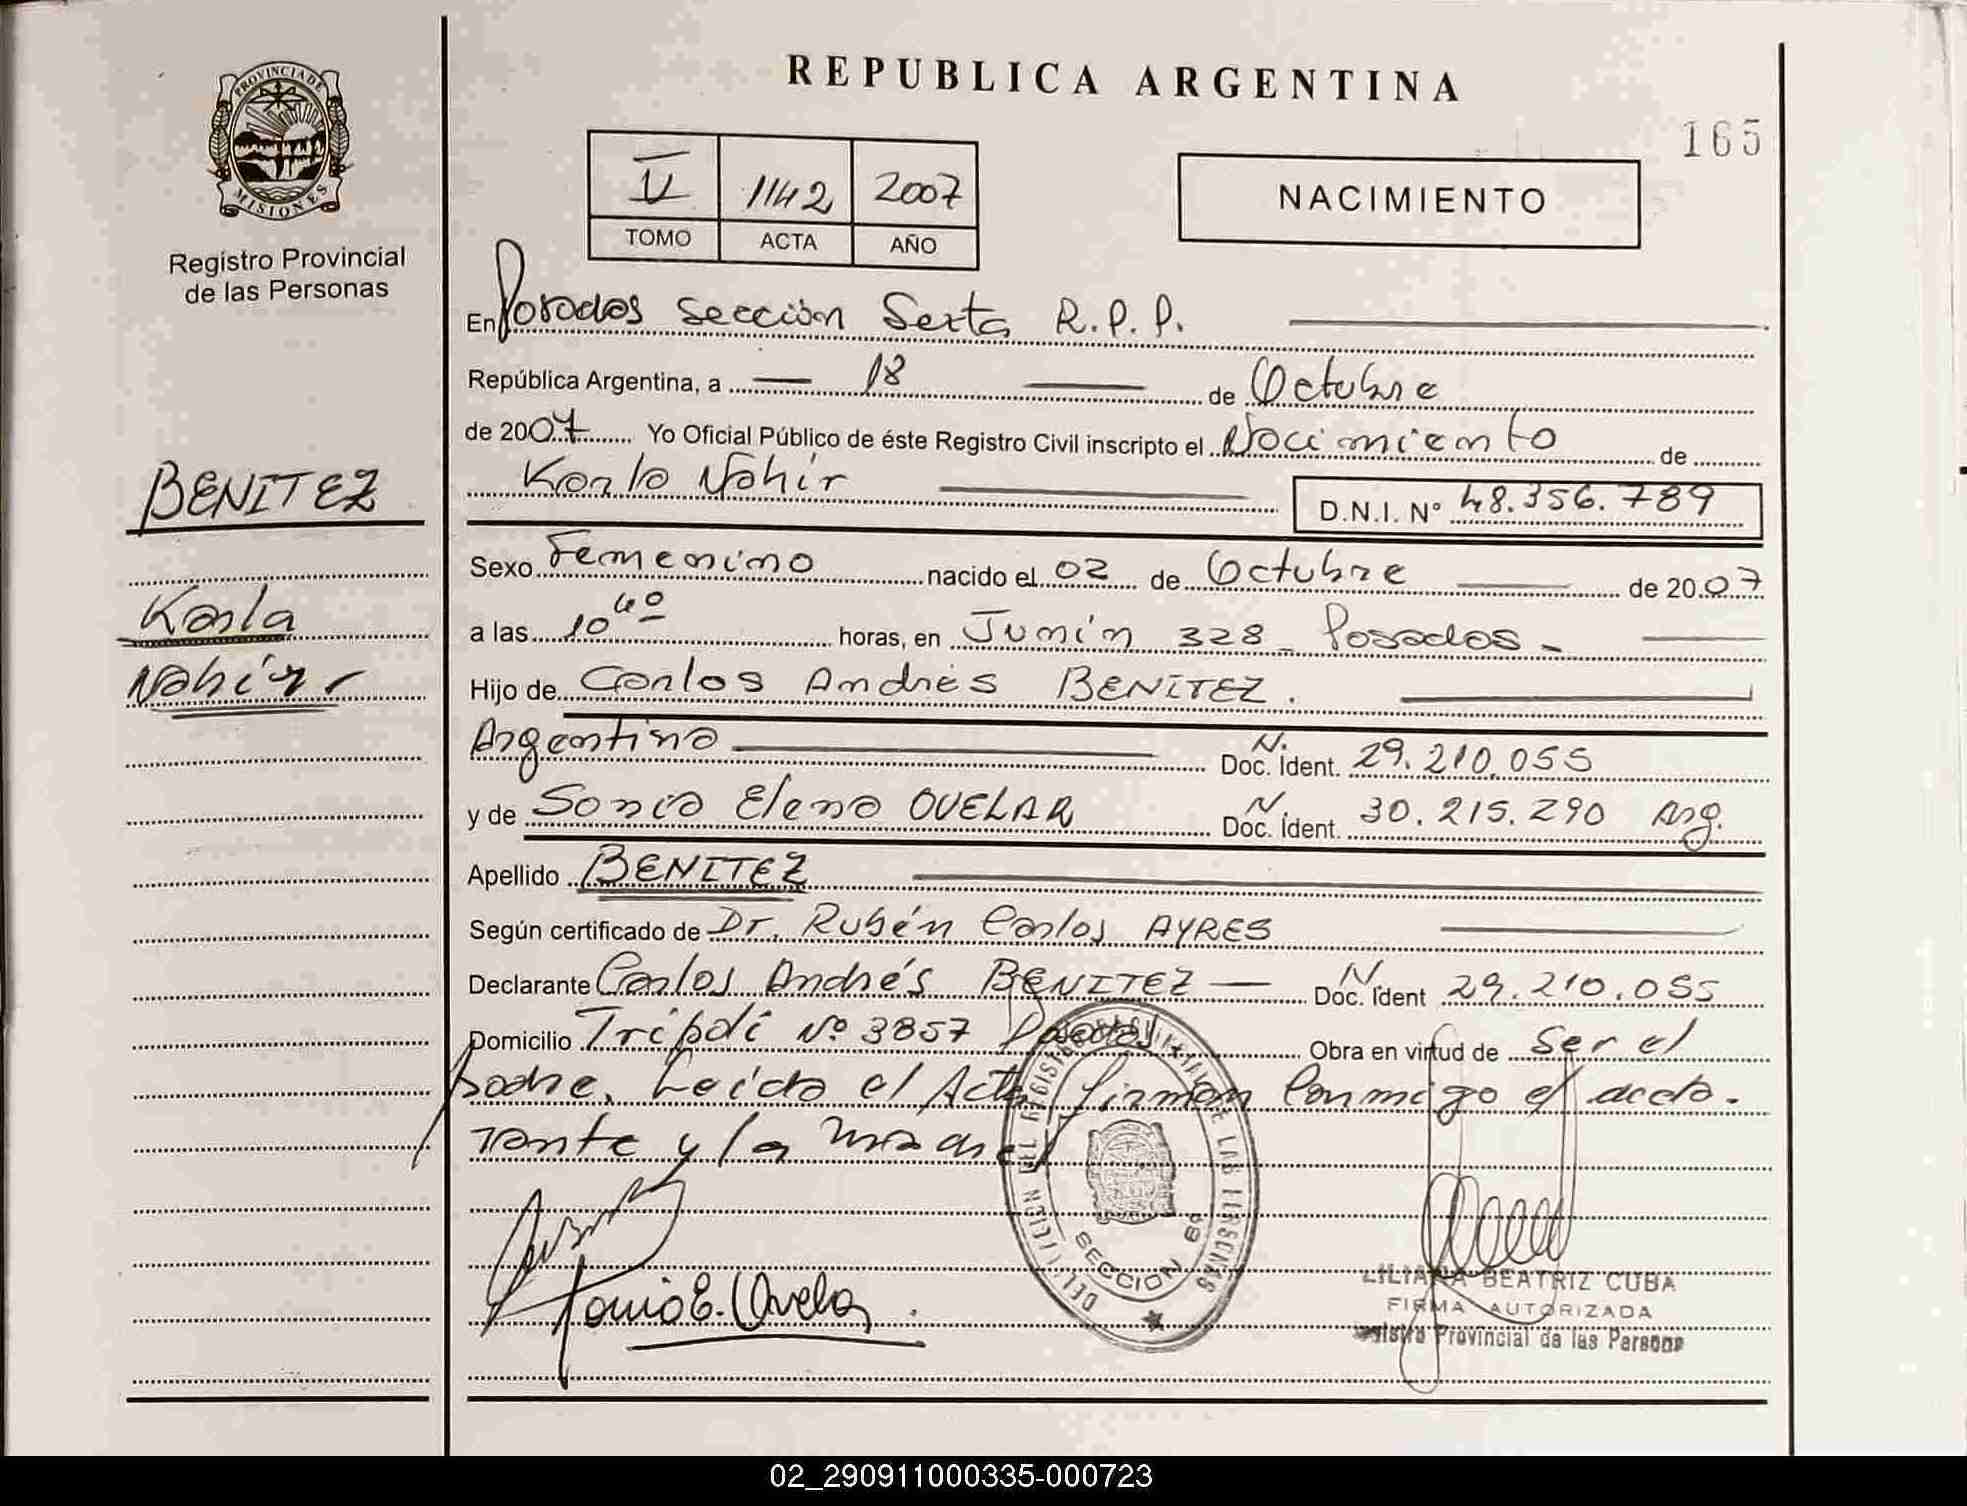 PROVINCIA DE
MISIONES
Registro Provincial
de las Personas
BENITEZ
Karla
Nahir
REPUBLICA ARGENTINA
165
V 1142 2007
TOMO ACTA AÑO
NACIMIENTO
En Posadas Sección Sexta R.P.P.
República Argentina, a 18 de Octubre
de 2007 Yo Oficial Público de éste Registro Civil inscripto el Nacimiento de
Karla Nahir D.N.I. Nº 48.356.789
Sexo Femenino nacido el 02 de Octubre de 2007
a las 10 40 horas, en Junín 328 - Posadas -
Hijo de Carlos Andrés BENITEZ.
Argentino N. Doc. Ident. 29.210.055
y de Sonia Elena OVELAR N. Doc. Ident. 30.215.290 Arg.
Apellido BENITEZ
Según certificado de Dr. Rubén Carlos AYRES
Declarante Carlos Andrés BENITEZ N. Doc. Ident 29.210.055
Domicilio Trípoli Nº 3857 Posadas Obra en virtud de Ser el
padre. Leída el Acta firman conmigo el decla-
rante y la madre
Sonia E. Ovelar
SECCION 6ª
LILIANA BEATRIZ CUBA
FIRMA AUTORIZADA
Registro Provincial de las Persona
02_290911000335-000723